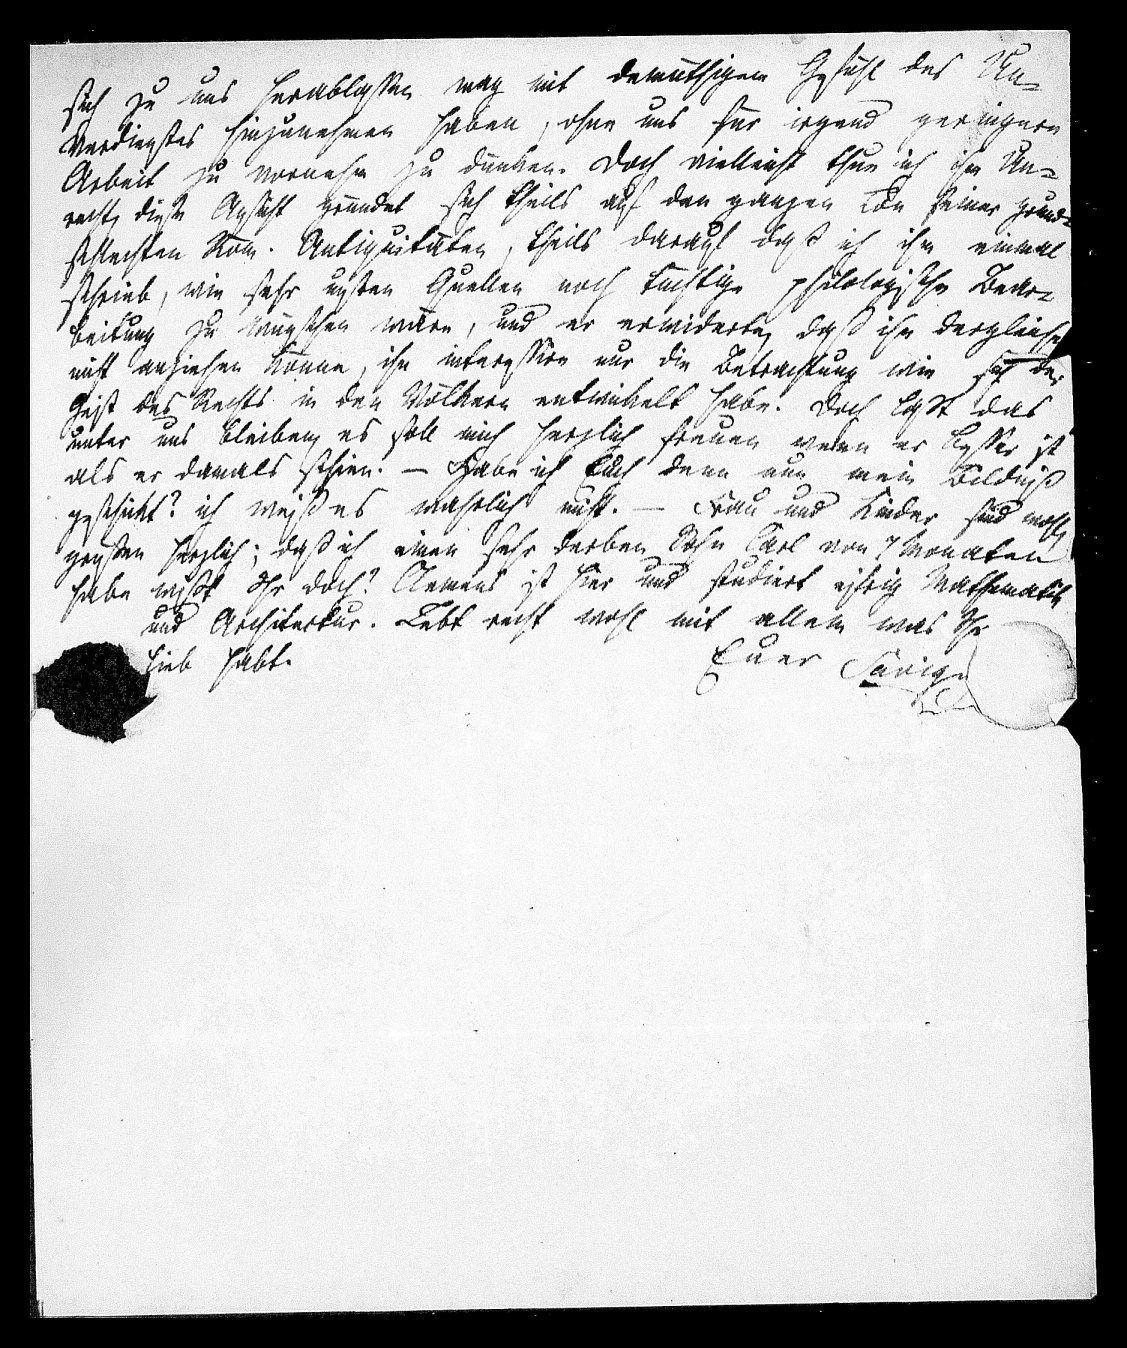 sich zu uns herablassen mag mit demüthigem Gefühl des Un-
Verdienstes hinzunehmen haben, ohne uns für irgend geringere
Arbeit zu vornehm zu dünken. Doch vielleicht thue ich ihm Un-
recht, diese Ansicht gründet sich theils auf den ganzen Ton seiner grund-
schlechten Röm. Antiquitäten, theils darauf daß ich ihm einmal
schrieb, wie sehr unsren Quellen noch tüchtige philologische Bear-
beitung zu wünschen wäre, und er erwiderte, daß ihn dergleichen
nicht anziehen könne, ihn interessire nur die Betrachtung wie sich der
Geist des Rechts in den Völkern entwickelt habe. Doch laßt das
unter uns bleiben, es soll mich herzlich freuen wenn er besser ist
als er damals schien. – Habe ich Euch denn nun mein Bildniß
geschickt? ich weiß es wahrlich nicht. – Frau und Kinder sind wohl
grüßen herzlich; daß ich einen sehr derben Sohn Carl von 7 Monaten
habe wißt Ihr doch? Clemens ist hier und studiert eifrig Mathematik
und Architektur. Lebt recht wohl mit allem was Ihr
lieb habt.
Euer Savigny